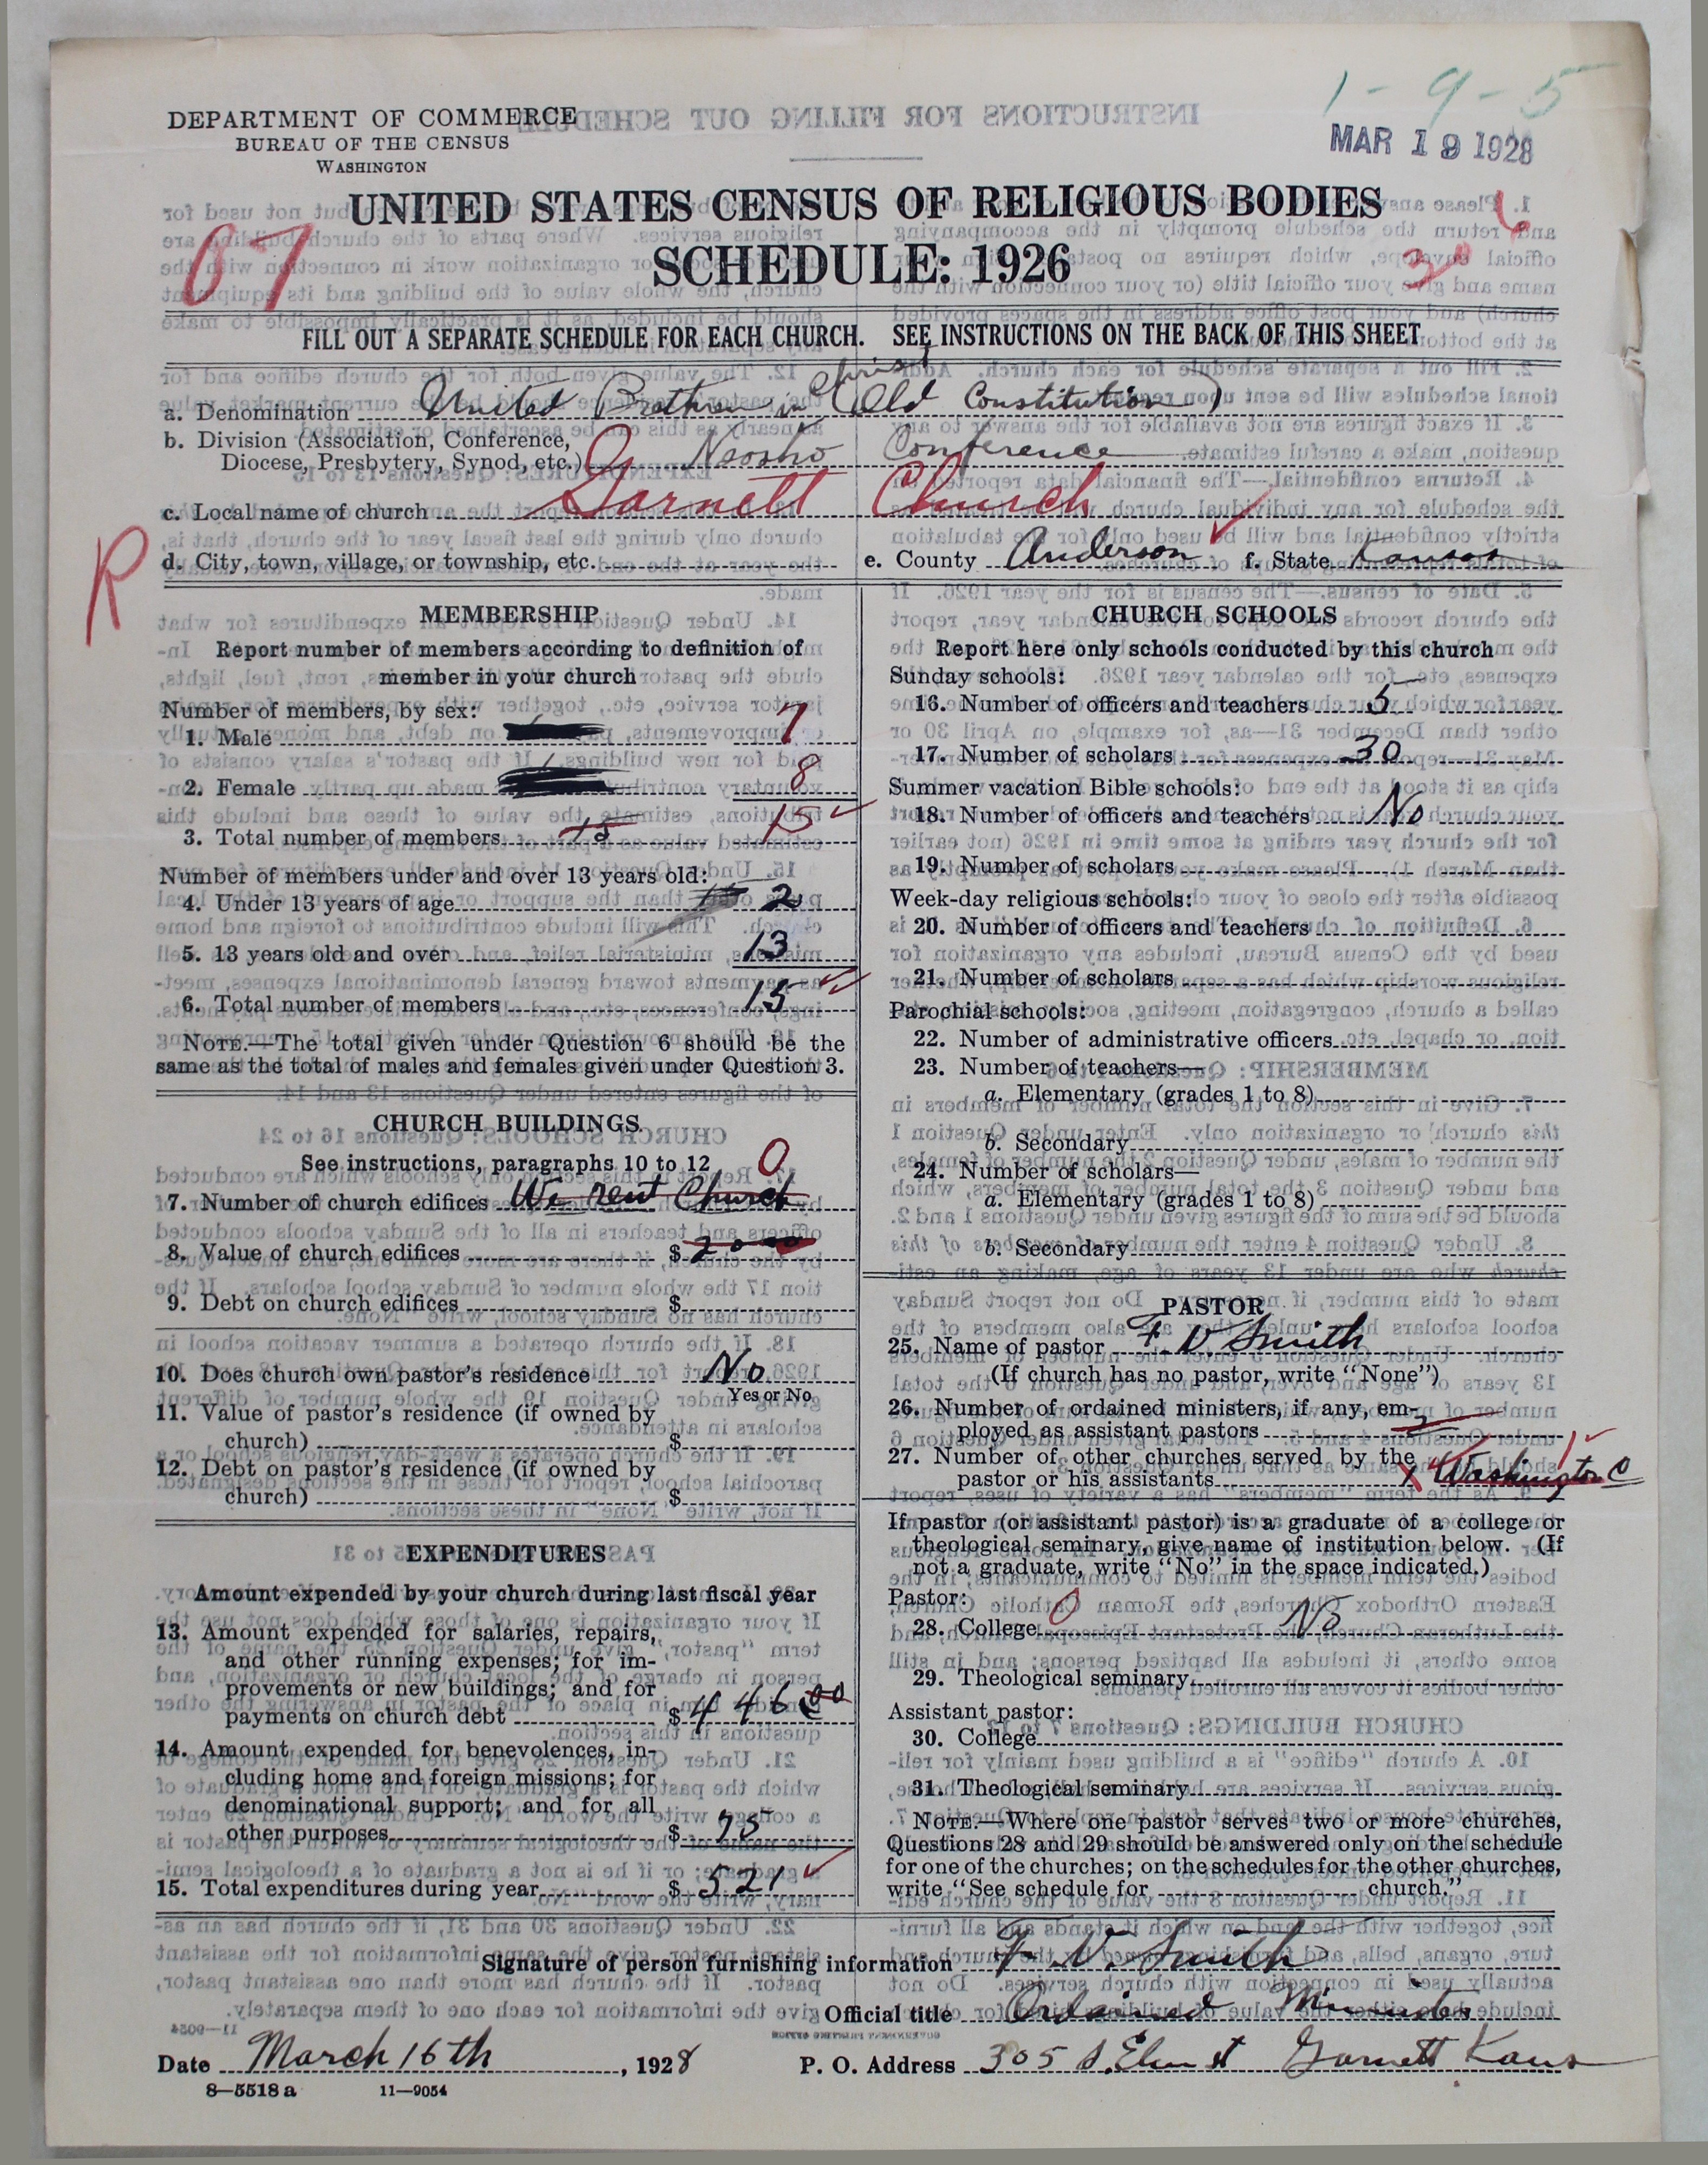 1-9-5
DEPARTMENT OF COMMERCE
BUREAU OF THE CENSUS
WASHINGTON
MAR 19 1928
UNITED STATES CENSUS OF RELIGIOUS BODIES
SCHEDULE: 1926
07
FILL OUT A SEPARATE SCHEDULE FOR EACH CHURCH. SEE INSTRUCTIONS ON THE BACK OF THIS SHEET
a. Denomination United Brethren in Christ (Old Constitution)
b. Division (Association, Conference,
Diocese, Presbytery, Synod, etc.) Neosho Conference
c. Local name of church Garnett Church
R
d. City, town, village, or township, etc. e. County Anderson f. State Kansas
MEMBERSHIP
Report number of members according to definition of
member in your church
Number of members, by sex:
1. Male 7
2. Female 8
3. Total number of members 15 15
Number of members under and over 13 years old:
4. Under 13 years of age 2
5. 13 years old and over 13
6. Total number of members 15
NOTE.—The total given under Question 6 should be the
same as the total of males and females given under Question 3.
CHURCH BUILDINGS
See instructions, paragraphs 10 to 12 0
7. Number of church edifices We rent Church
8. Value of church edifices $
9. Debt on church edifices $
10. Does church own pastor's residence No
Yes or No
11. Value of pastor's residence (if owned by
church) $
12. Debt on pastor's residence (if owned by
church) $
EXPENDITURES
Amount expended by your church during last fiscal year
13. Amount expended for salaries, repairs,
and other running expenses; for im-
provements or new buildings; and for
payments on church debt $ 446 00
14. Amount expended for benevolences, in-
cluding home and foreign missions; for
denominational support; and for all
other purposes $ 75
15. Total expenditures during year $ 521
CHURCH SCHOOLS
Report here only schools conducted by this church
Sunday schools:
16. Number of officers and teachers 5
17. Number of scholars 30
Summer vacation Bible schools:
18. Number of officers and teachers No
19. Number of scholars
Week-day religious schools:
20. Number of officers and teachers
21. Number of scholars
Parochial schools:
22. Number of administrative officers
23. Number of teachers—
a. Elementary (grades 1 to 8)
b. Secondary
24. Number of scholars—
a. Elementary (grades 1 to 8)
b. Secondary
PASTOR
25. Name of pastor F. V. Smith
(If church has no pastor, write "None")
26. Number of ordained ministers, if any, em-
ployed as assistant pastors
27. Number of other churches served by the
pastor or his assistants X Washington C 1
If pastor (or assistant pastor) is a graduate of a college or
theological seminary, give name of institution below. (If
not a graduate, write "No" in the space indicated.)
Pastor:
28. College 0 No
29. Theological seminary
Assistant pastor:
30. College
31. Theological seminary
NOTE.—Where one pastor serves two or more churches,
Questions 28 and 29 should be answered only on the schedule
for one of the churches; on the schedules for the other churches,
write "See schedule for church."
Signature of person furnishing information F. V. Smith
Official title Ordained Minister
Date March 16th, 1928 P. O. Address 305 S. Elm st Garnett Kans
8—5518 a 11—9054